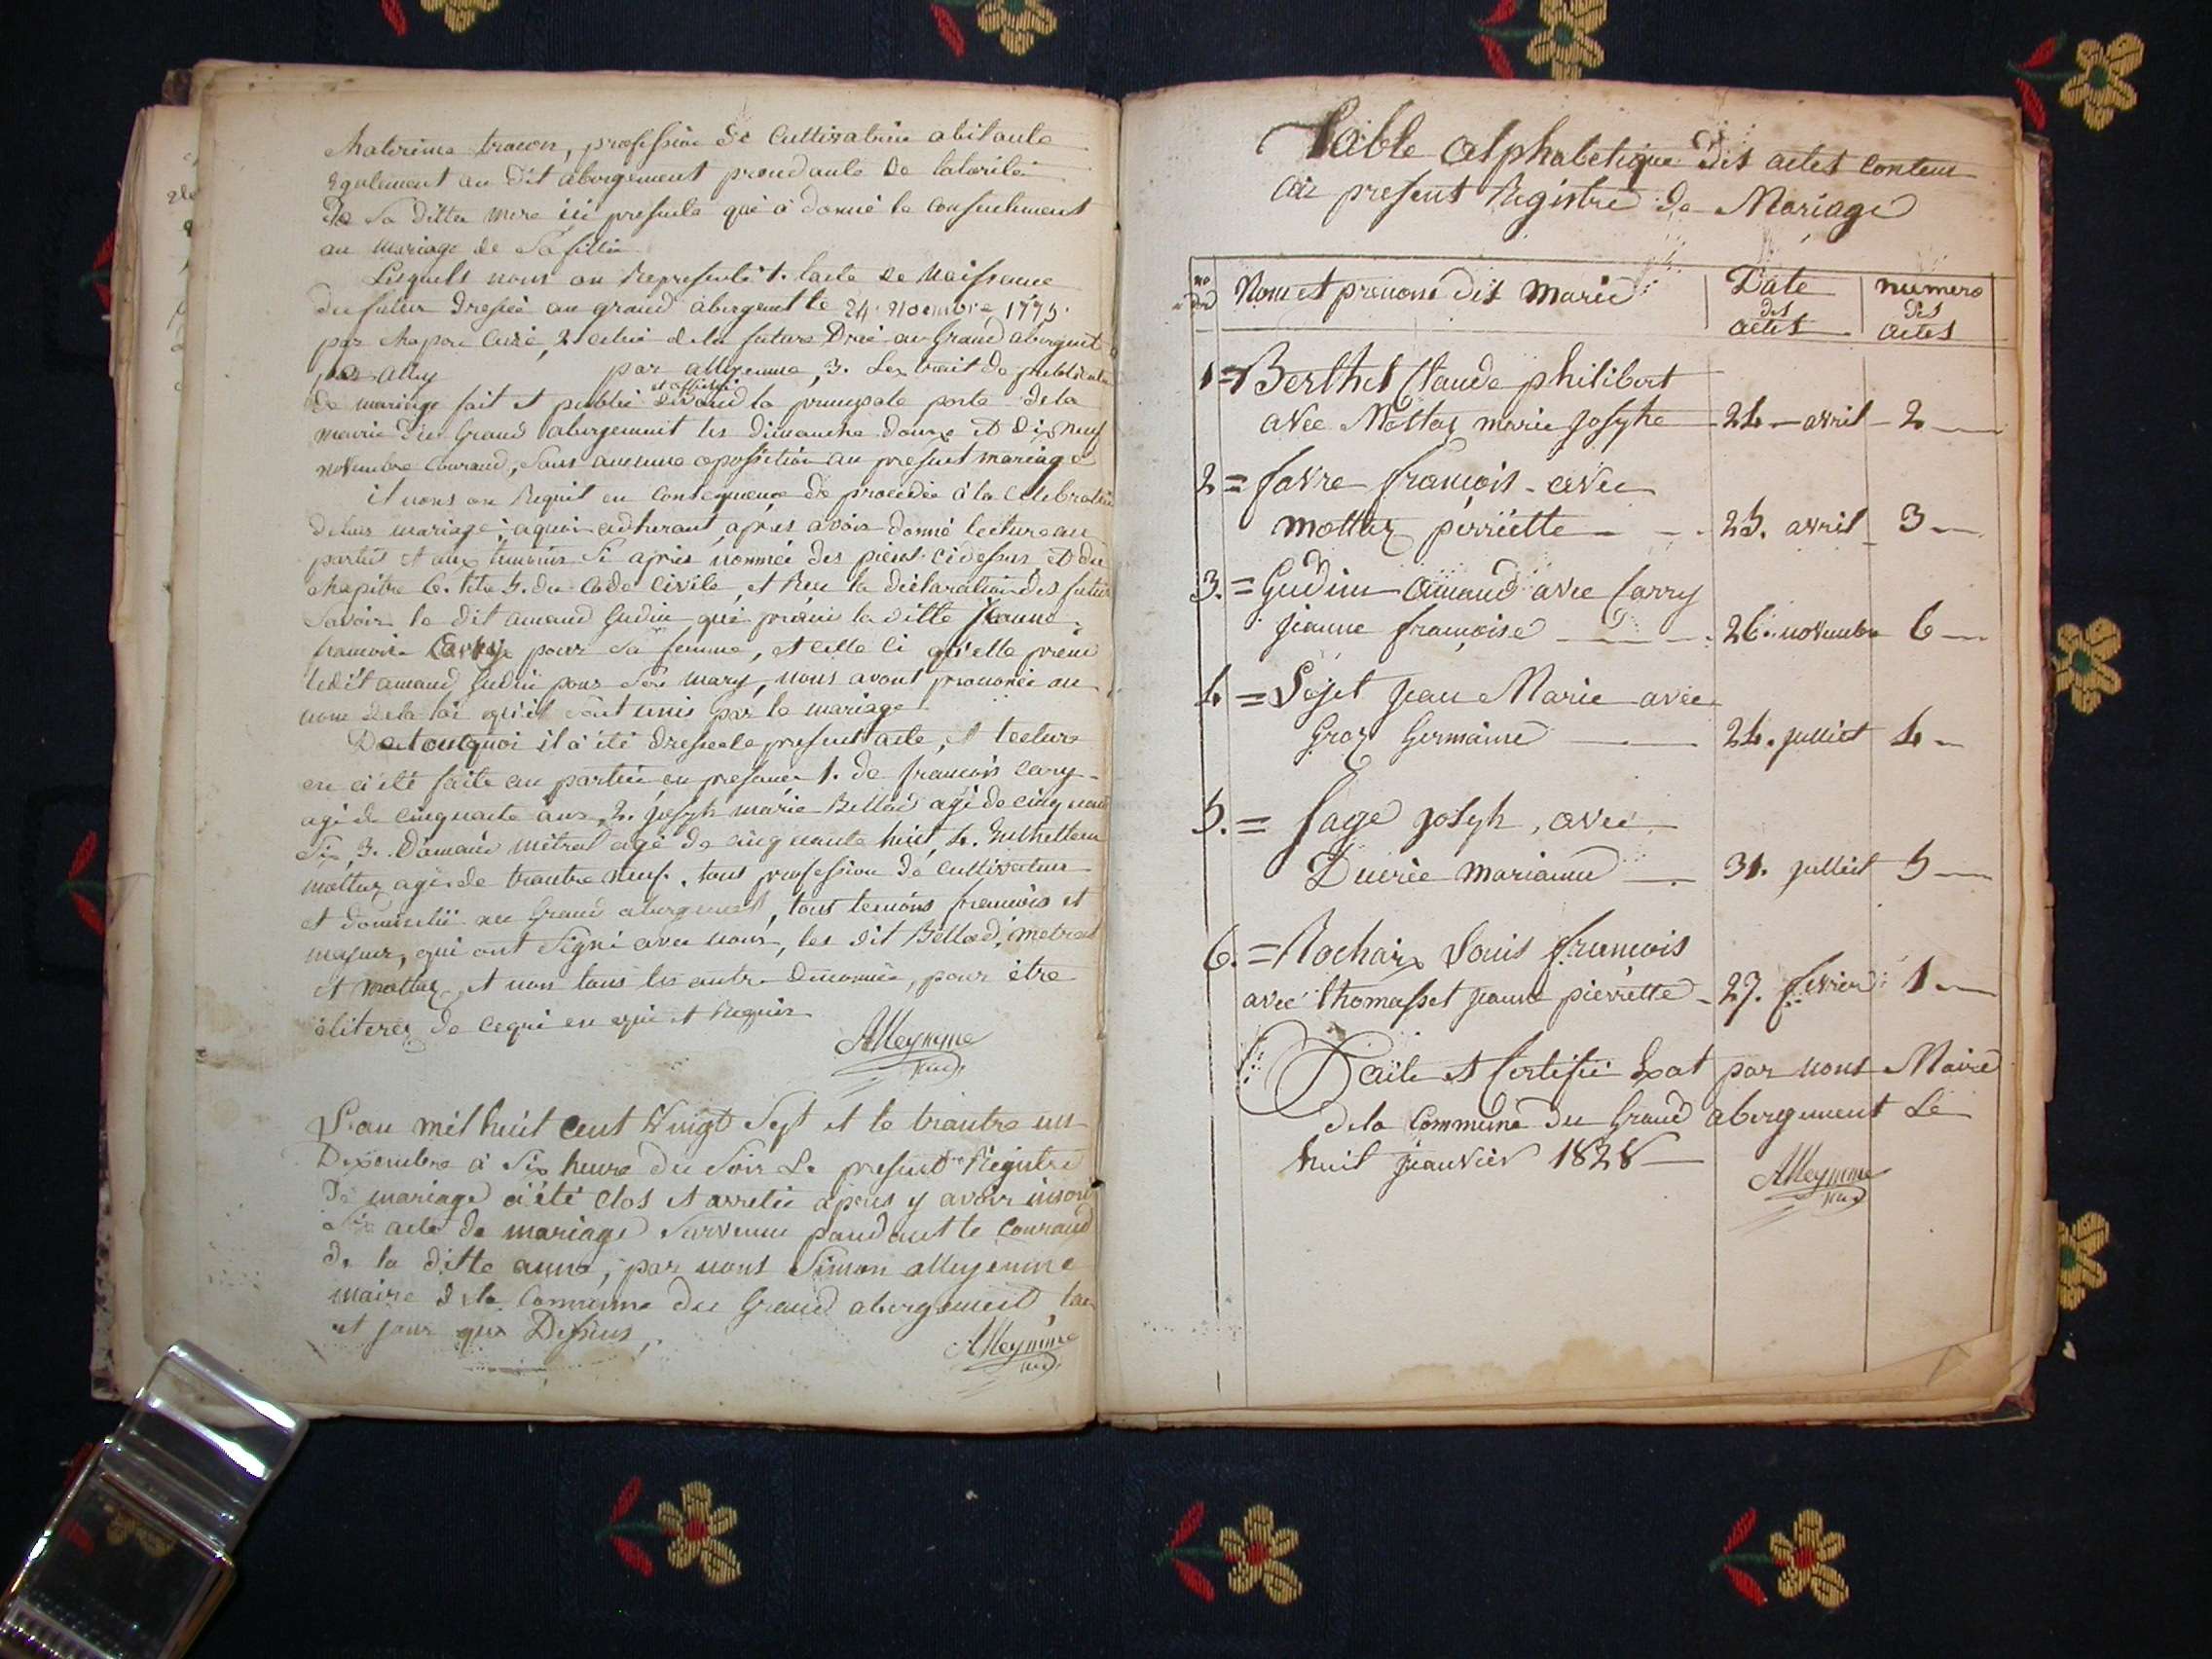 Materime tracon, profession de Cultivatrice abitante
egalement au dit abergement proudante de latorité
de sa ditte mere ici presente qui à donné le consentement
au mariage de sa fille
Lesquels nous on Representé 1. lacte de Naissance
du futur dressée au grand abergemt le 24 novembre 1775.
par curé, 2. celui de la future Dréé au Grand abergemt
par Alley par alleyemme, 3. Lextrait de publication
de mariage fait et publié et affiché devand la principale porte de la
mairie du Grand abergement les dimanche douze et dix neuf
novembre Courand, sans aucunne oposition au present mariage
il nous on Requit en Consequence de procedée à la Celebration
de leur mariage; aquoi adherant, apres avoir donné lecture au
partis et aux temoins si apres nommée des pieces ci desus et du
chapitre 6. titre 5. du Code Civile, et Reçu la déclaration des futur
savoir le dit amand Gudin qui prend la ditte Jeanne
francoise Carry pour sa femme, et celle ci qu'elle prend
ledit amand Gudin pour son mary, nous avont prononcé au
nom de la loi qu'il sont unis par le mariage
De tout quoi il à été dressée le present acte, et lecture
en à été faite au partie en presance 1. de francois Cary
agé de cinquante ans, 2. Joseph marie Bellod agé de cinquante
six, 3. Damand métral agé de cinquante huit, 4.
mottaz agé de trantre neuf, tous profession de cultivateur
et domicilié au Grand abergement, tous temoins francois et
majeur, qui ont signé avec nous, les dit Bellod, metral
et mottaz et non tous les autre denommée, pour être
éliterez de cequi en equi et Requis
Alleynme
Maire
L'an mil huit cent Vingt sept et le trantre un
Dexembre à six heure du soir Le present Registre
de mariage à été clos et arretée apres y avoir inscri
six acte de mariage survenu pandant le Courand
de la ditte anné, par nous Simon alleyemme
maire de la Commune du Grand abergement lan
et jour que Dessus,
Alleynme
Table alphabetique des actes contenu
au present Registre de Mariage
no d'ord Nom et prenoms des marié Date des actes numero des actes
1 = Berthet Claude philibert
avec Mottaz marie josephe 24 avril 2
2 = favre françois avec
mottaz pérriette 25. avril 3
3. = Gudin amand avec Carry
jeanne françoise 26. novembre 6
4 = Sejet jean Marie avec
Groz Germaine 24. julliet 4
5. = Sage joseph, avec
Ducrée marianne 31. julliet 5
6. = Rochaix Louis francois
avec thomasset jeanne piérrette 27. fevrier 1
Faite et Certifié Exat par nous Maire
de la Commune du Grand abergement Le
huit jeanvier 1828
Alleynme